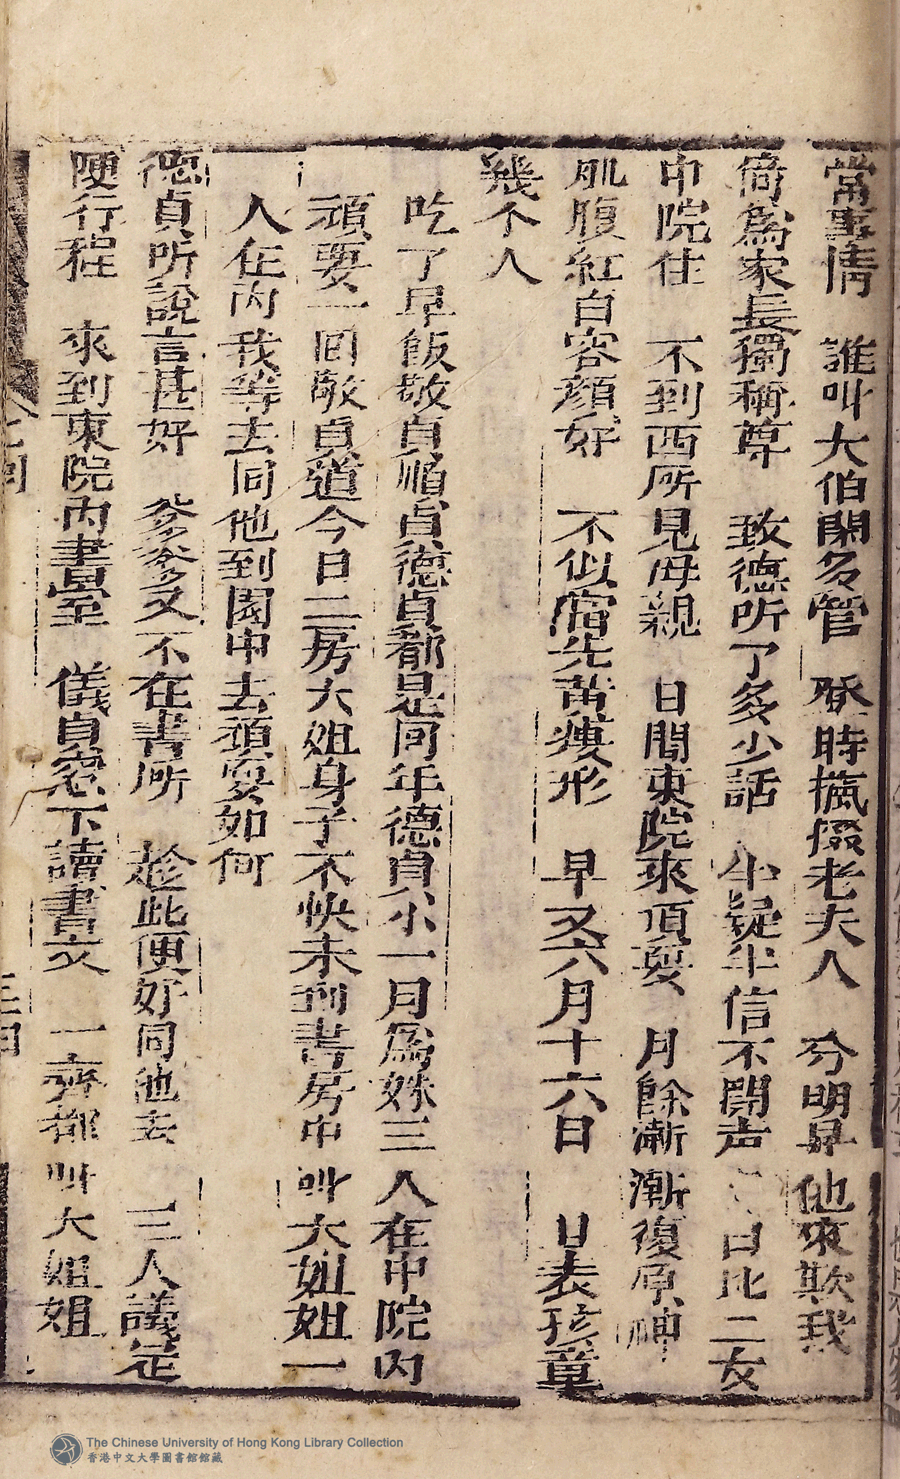 常事情 誰叫大伯閑多管 登時搋掇老夫人 分明是他來欺我
倚爲家長獨稱尊 致德听了多少話 半疑半信不開声 曰比二女
中院住 不到西所見母親 日間東院來頑耍 月餘漸漸復原神
肌膚紅白容顏好 不似宿先黃瘦形 早又六月十六日 日表孩童
幾个人
吃了早飯敬貞順貞德貞都是同年德貞小一月爲妹三人在中院內
頑耍一囬敬貞道今日二房大姐身子不快未到書房中叫大姐姐一
人在內我等去同他到園中去頑耍如何
德貞所說言甚好 爹爹又不在書所 趁此便好同他去 三人議定
便行程 來到東院內書房 儀貞念下讀書文 一齊都叫大姐姐
The Chinese University of Hong Kong Library Collection
香港中文大學圖書館館藏